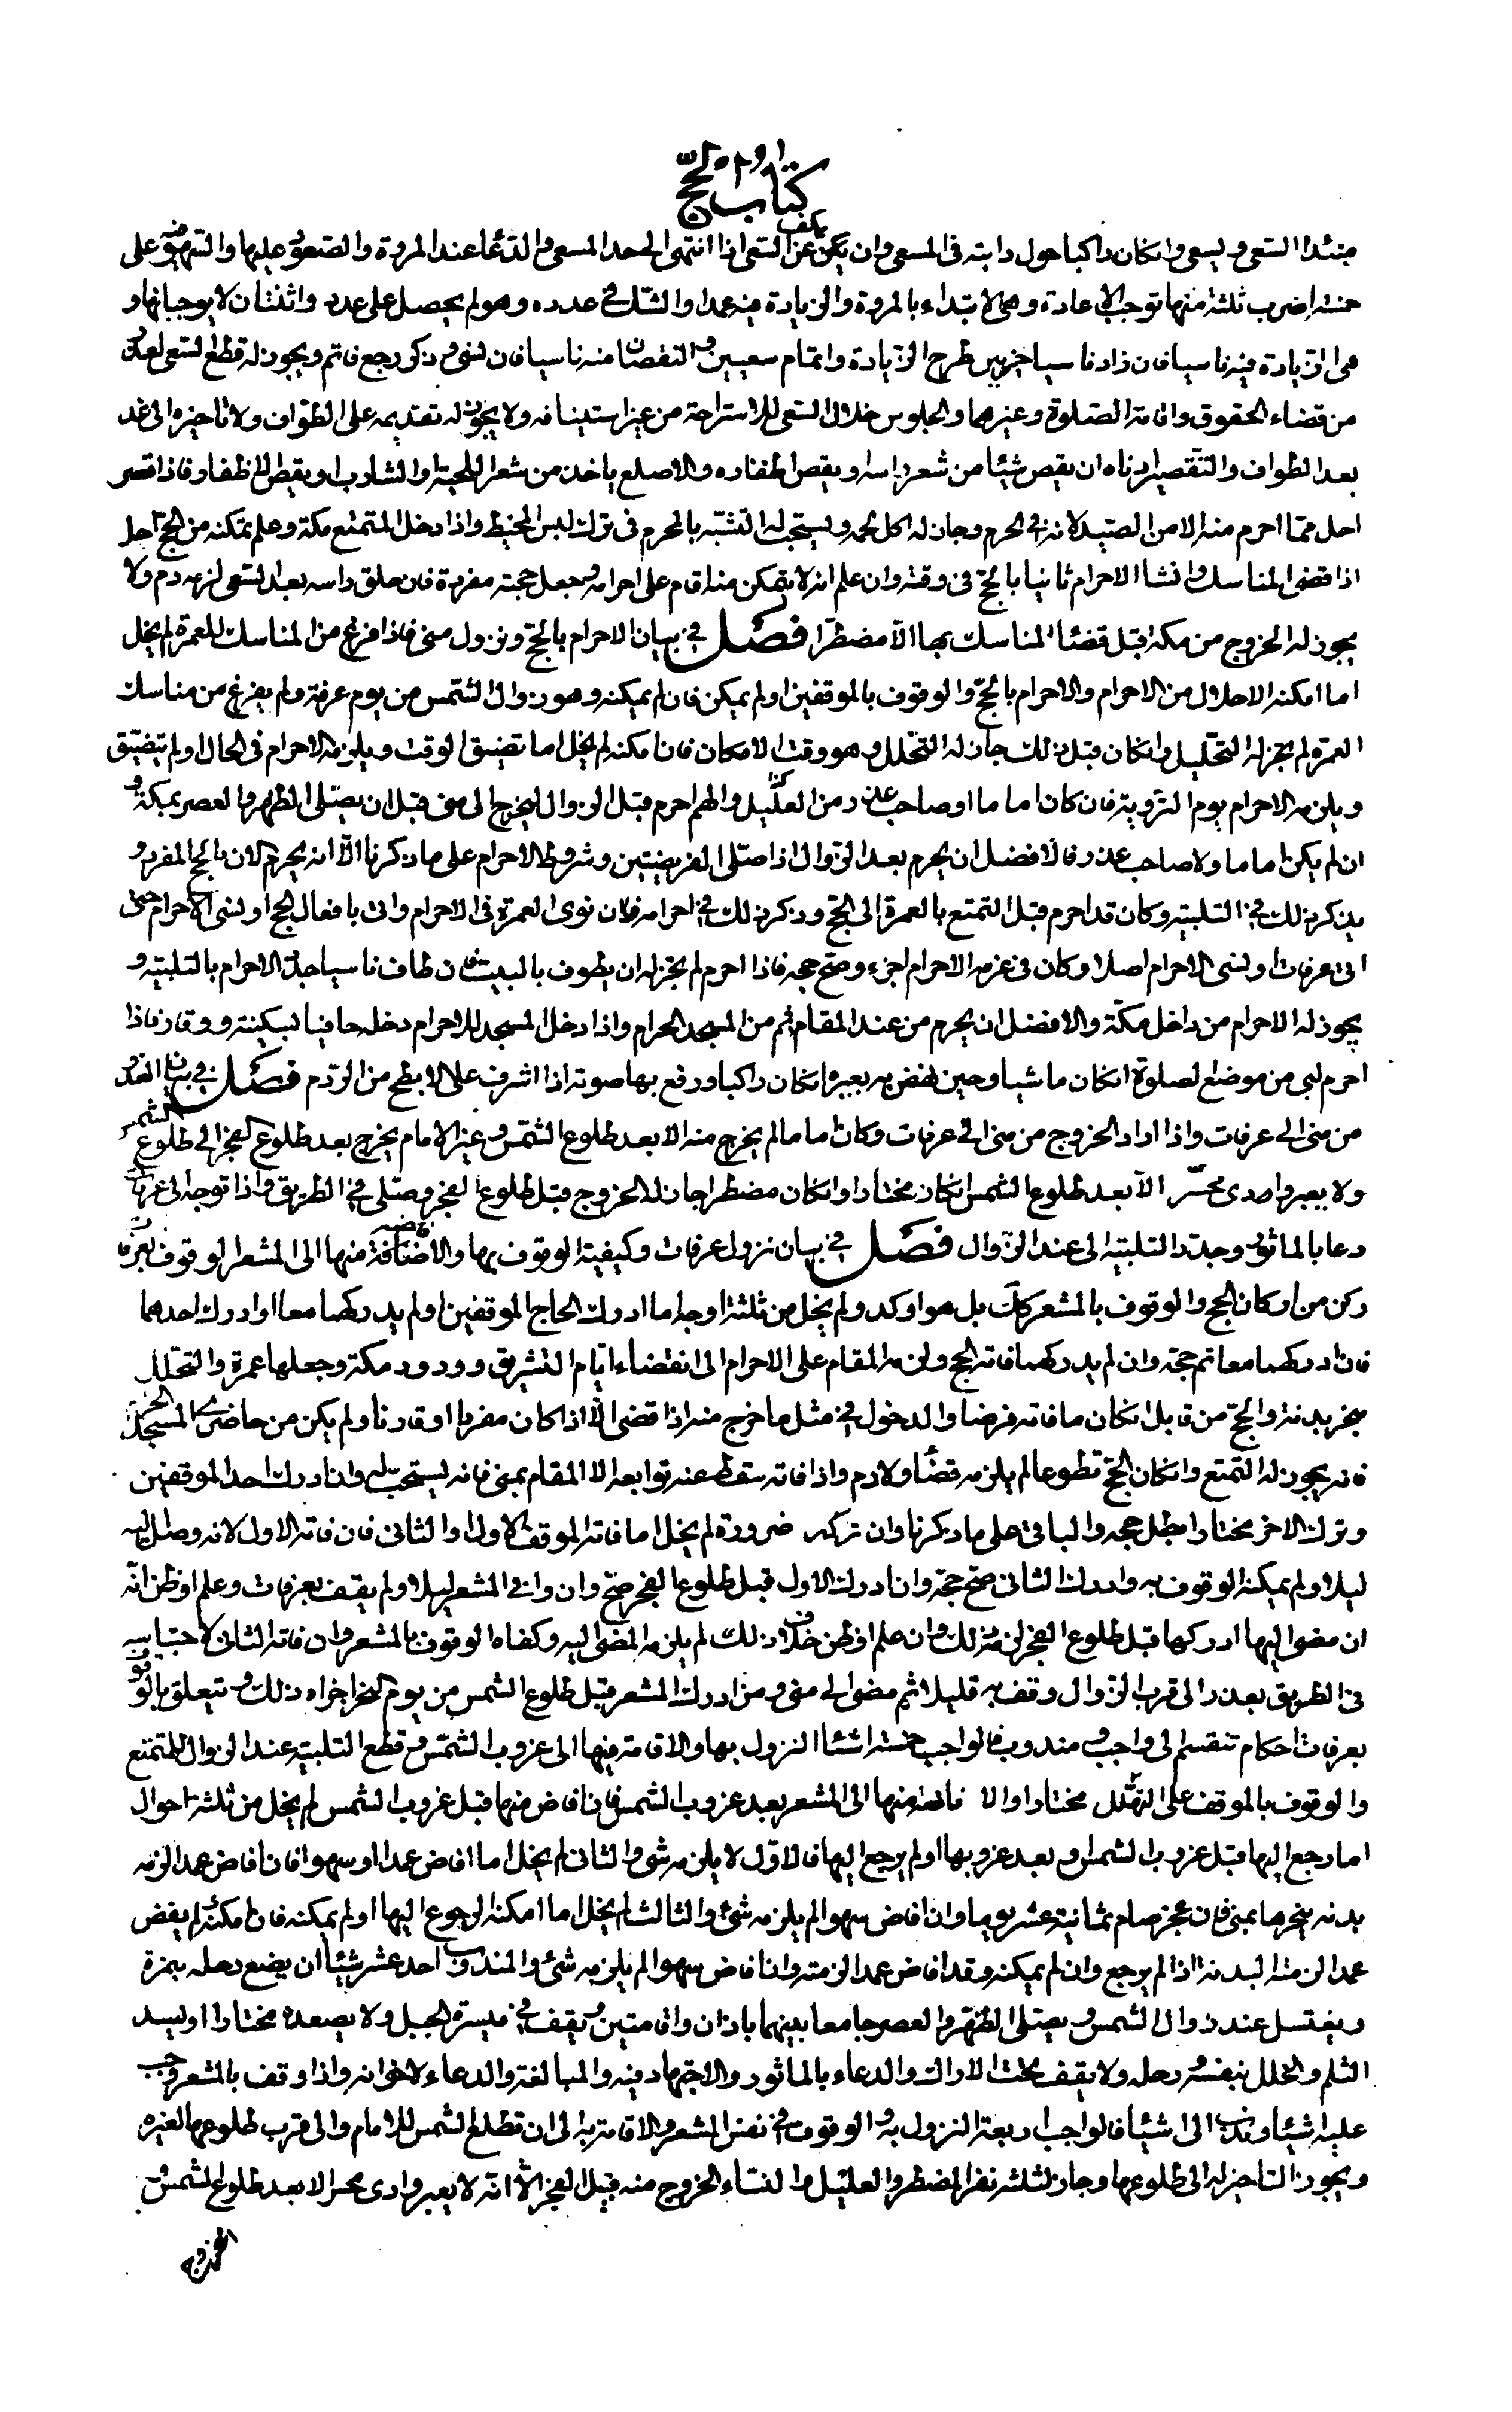 كتاب الحج
مبتدا السعى ويسعى وان كان راكبا حول دابته فى المسعى وان يكف عن السعى اذا انتهى الى حد المسعى والدعا عند المروة والصعود عليها والسهو فيه على
خمسة اضرب ثلثة منها توجب الاعادة وهى الابتداء بالمروة والزيادة فيه عمدا والشك فى عدده وهو لم يحصل على عدد واثنتان لا يوجبانها و
هى الزيادة فيه ناسيا فان زاد ناسيا خير بين طرح الزيادة واتمام سعيين والنقصان منه ناسيا فان نسى وذكر رجع فاتم ويجوز له قطع السعى لعذر
من قضاء الحقوق واقامة الصلوة وغيرهما والجلوس خلال السعى للاستراحة من غير استيناف ولا يجوز له تقديمه على الطواف ولا تاخيره الى غد
بعد الطواف والتقصير ادناه ان يقص شيئا من شعر راسه او يقص اظفاره والاصلع ياخذ من شعر اللحية او الشارب او يقص الاظفار فاذا قصر
احل مما احرم منه الا من الصيد لانه فى الحرم وجاز له اكل لحمه ويستحب له التشبه بالمحرم فى ترك لبس المخيط واذا دخل المتمتع مكة وعلم تمكنه من الحج احل
اذا قضى المناسك وانشا الاحرام ثانيا بالحج فى وقته وان علم انه لا يتمكن منه اقام على احرامه وجعل حجته مفردة فان حلق راسه بعد السعى لزمه دم ولا
يجوز له الخروج من مكة قبل قضاء المناسك بها الا مضطرا فصل فى بيان الاحرام بالحج ونزول منى فاذا فرغ من المناسك للعمرة لم يخل
اما امكنه الاحلال من الاحرام والاحرام بالحج والوقوف بالموقفين او لم يمكن فان لم يمكنه وهو زوال الشمس من يوم عرفة ولم يفرغ من مناسك
العمرة لم يجز له التحليل وان كان قبل ذلك جاز له التحلل وهو وقت الامكان فان امكنه لم يخل اما تضيق الوقت ويلزمه الاحرام فى الحال او لم يتضيق
ويلزمه الاحرام يوم التروية فان كان اماما او صاحب عذر من العليل والهم احرم قبل الزوال ليخرج الى منى قبل ان يصلى الظهر والعصر بمكة و
ان لم يكن اماما ولا صاحب عذر فالافضل ان يحرم بعد الزوال اذا صلى الفريضتين وشروط الاحرام على ما ذكرنا الا انه يحرم الان بالحج المفرد و
يذكر ذلك فى التلبيه وكان قد احرم قبل التمتع بالعمرة الى الحج وذكر ذلك فى احرامه فان نوى العمرة فى الاحرام واتى بافعال الحج او نسى الاحرام حتى
اتى عرفات او نسى الاحرام اصلا وكان فى عزمه الاحرام اجزء وصح حجه فاذا احرم لم يجز له ان يطوف بالبيت فان طاف ناسيا جدد الاحرام بالتلبيه و
يجوز له الاحرام من داخل مكة والافضل ان يحرم من عند المقام ثم من المسجد الحرام واذا دخل المسجد للاحرام دخله حافيا بسكينة ووقار فاذا
احرم لبى من موضع الصلوة ان كان ماشيا وحين نهض به بعيره ان كان راكبا ورفع بها صوته اذا اشرف على الابطح من الردم فصل فى بيان الغدو
من منى الى عرفات واذا اراد الخروج من منى الى عرفات وكان اماما لم يخرج منه الا بعد طلوع الشمس وغير الامام يخرج بعد طلوع الفجر الى طلوع الشمس
ولا يعبر وادى محسر الا بعد طلوع الشمس ان كان مختارا وان كان مضطرا جاز له الخروج قبل طلوع الفجر ويصلى فى الطريق واذا توجه الى عرفات
دعا بالماثور وجدد التلبية الى عند الزوال فصل فى بيان نزول عرفات وكيفية الوقوف بها والافاضة منها الى المشعر الوقوف بعرفات
ركن من اركان الحج والوقوف بالمشعر كذلك بل هو اوكد ولم يخل من ثلثة اوجه اما ادرك الحاج الموقفين او لم يدركهما معا او ادرك احدهما
فان ادركهما معا تم حجه وان لم يدركهما فاته الحج ولزمه المقام على الاحرام الى انقضاء ايام التشريق وورود مكة وجعلها عمرة والتحلل
بنحر بدنة والحج من قابل ان كان ما فاته فرضا والدخول فى مثل ما خرج منه اذا قضى الا اذا كان مفردا او قارنا ولم يكن من حاضرى المسجد الحرام
فانه يجوز له التمتع وان كان الحج تطوعا لم يلزمه قضاء ولا دم واذا فاته سقط عنه توابعه الا المقام بمنى فانه يستحب له وان ادرك احد الموقفين
وترك الاخر مختارا بطل حجه والباقى على ما ذكرنا وان تركه ضرورة لم يخل اما فاته الموقف الاول او الثانى فان فاته الاول لانه وصل اليه
ليلا ولم يمكنه الوقوف به وادرك الثانى صح حجه وان ادرك الاول قبل طلوع الفجر صح وان وافى المشعر ليلا ولم يقف بعرفات وعلم او ظن انه
ان مضى اليها ادركها قبل طلوع الفجر لزمه ذلك وان علم او ظن خلاف ذلك لم يلزمه المضى اليه وكفاه الوقوف بالمشعر وان فاته الثانى لاحتباسه
فى الطريق بعذر الى قرب الزوال وقف به قليلا ثم مضى الى منى ومن ادرك المشعر قبل طلوع الشمس من يوم النحر اجزاه ذلك ويتعلق بالوقوف
بعرفات احكام تنقسم الى واجب ومندوب فالواجب خمسة اشيا النزول بها والاقامة فيها الى غروب الشمس وقطع التلبية عند الزوال للمتمتع
والوقوف بالموقف على مختارا والافاضة منها الى المشعر بعد غروب الشمس فان افاض منها قبل غروب الشمس لم يخل من ثلثة احوال
اما رجع اليها قبل غروب الشمس او بعد غروبها او لم يرجع اليها فالاول لا يلزمه شئ والثانى لم يخل اما افاض عمدا او سهوا فان افاض عمدا لزمه
بدنه ينحرها بمنى فان عجز صام ثمانية عشر يوما وان افاض سهوا لم يلزمه شئ والثالث لم يخل اما امكنه الرجوع اليها او لم يمكنه فان امكنه لم يفض
عمدا لزمته البدنة اذا لم يرجع وان لم يمكنه وقد افاض عمدا لزمته وان افاض سهوا لم يلزمه شئ والمندوب احد عشر شيئا ان يضع رحله بنمرة
ويغتسل عند زوال الشمس ويصلى الظهر والعصر جامعا بينهما باذان واقامتين ويقف فى ميسرة الجبل ولا يصعده مختارا او ليسد
الثلم والخلل بنفسه ورحله ولا يقف تحت الاراك والدعاء بالماثور والاجتهاد فيه والمبالغة والدعاء لاخوانه واذا وقف بالمشعر وجب
عليه اشيئا وندب الى اشيئا فالواجب اربعة النزول به والوقوف فى نفس المشعر والاقامة به الى ان تطلع الشمس للامام والى قرب طلوعها لغيره
ويجوز التاخير له الى طلوعها وجاز لثلثة نفر المضطر والعليل والنساء الخروج منه قبل الفجر الا انه لا يعبر وادى محسر الا بعد طلوع الشمس و